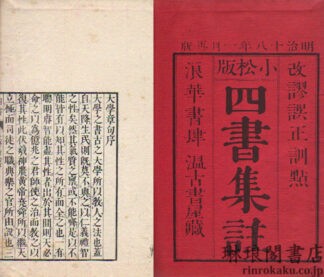 明治十八年一月再版
改謬誤正訓點
小松版
四書集註
浪華書肆 温古書屋藏
大學章句序
大學之書古之大學所以教人之法也蓋
自天降生民則既莫不與之以仁義禮智
之性矣然其氣質之稟或不能齊是以不
能皆有以知其性之所有而全之也一有
聰明睿智能盡其性者出於其間則天必
命之以爲億兆之君師使之治而教之以
復其性此伏羲神農黃帝堯舜所以繼天
立極而司徒之職典樂之官所由設也三
琳琅閣書店
rinrokaku.co.jp